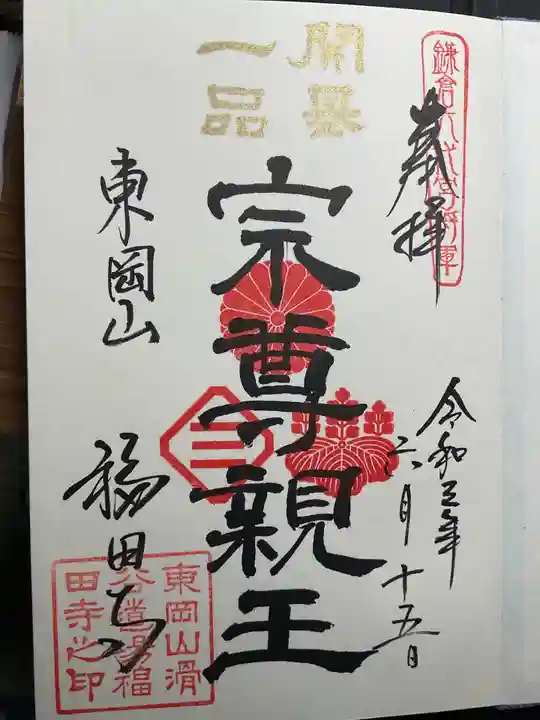 鎌倉六代宮将軍
奉拝
令和三年
六月十五日
開基
一品
宗尊親王
東岡山
福田寺
東岡山滑
谷道場福
田寺之印